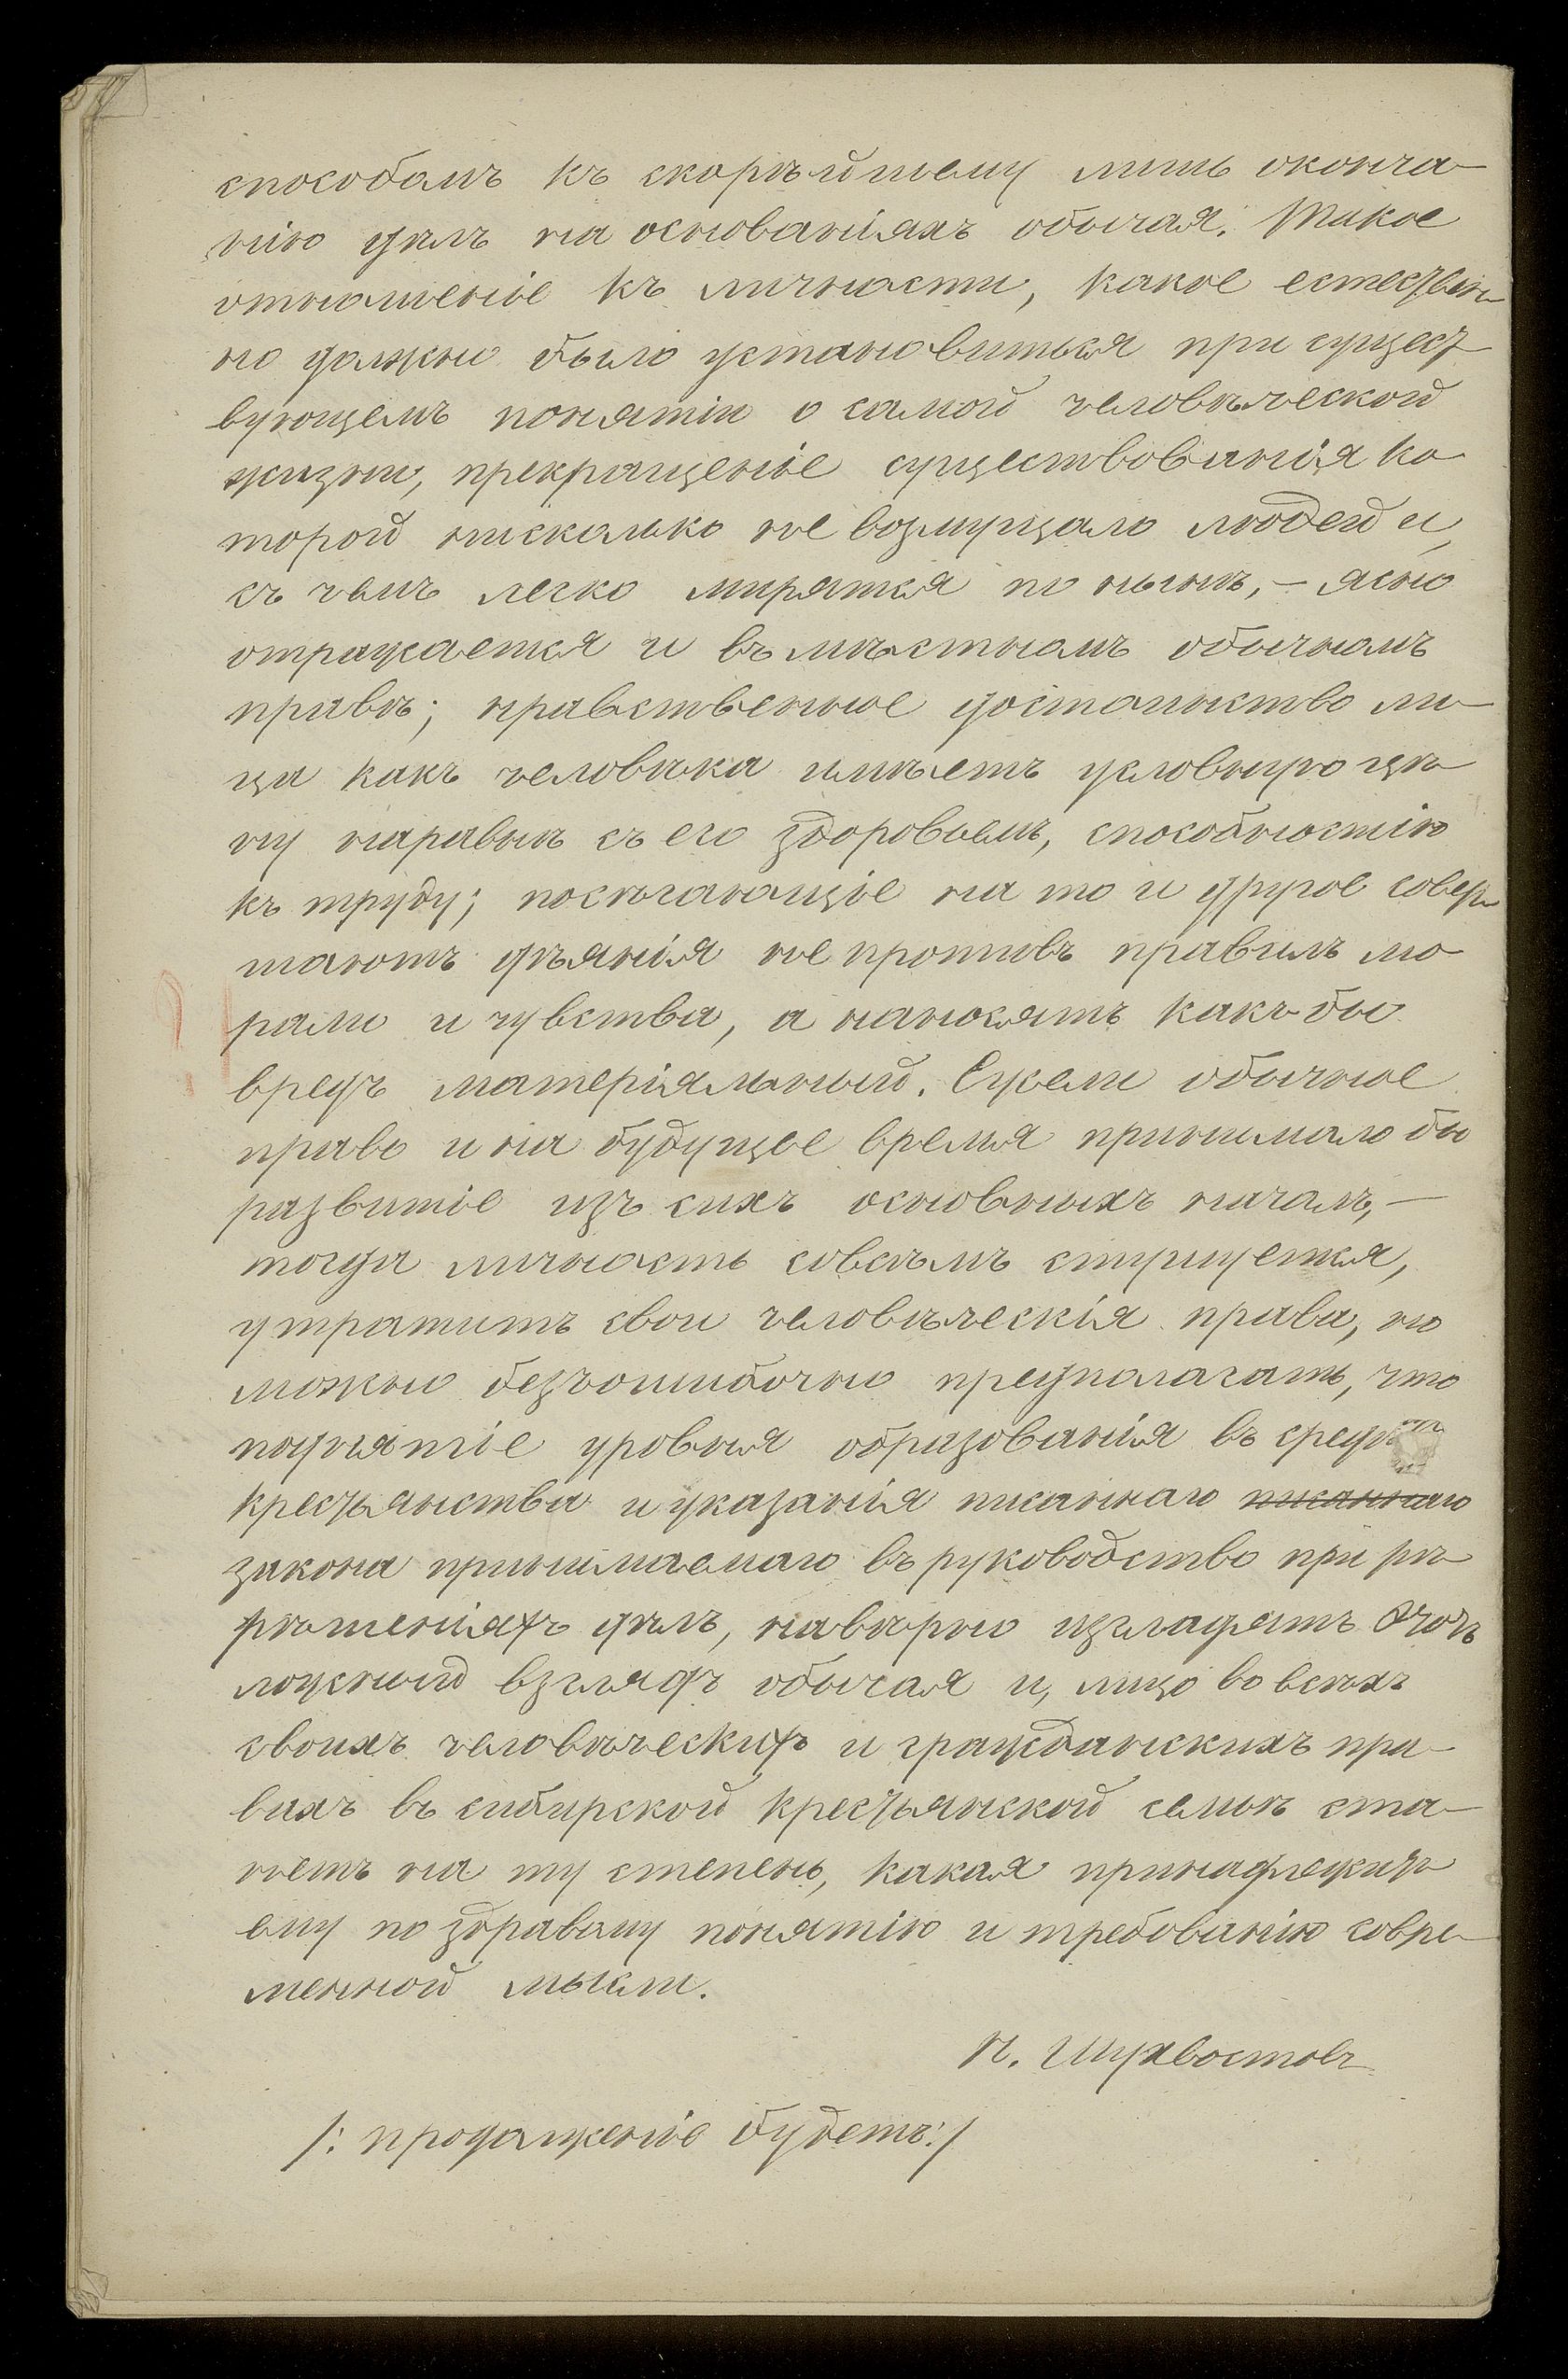 способамъ къ скорѣйшему лишь оконча-
нію дѣлъ на основаніяхъ обычая. Такое
отношеніе къ личности, какое естествен-
но должно было установиться при сущест-
вующемъ понятіи о самой человѣческой
жизни, прекращеніе существованія ко-
торой нисколько не возмущало людей и,
съ чемъ легко мирятся по нынѣ, - ясно
отражается и въ мѣстномъ обычномъ
правѣ; нравственное достоинство ли-
ца какъ человѣка имѣетъ условную цѣ-
ну наравнѣ съ его здоровьемъ, способностію
къ труду; посягающіе на то и другое совер-
шаютъ дѣянія не противъ правилъ мо-
рали и чувства, а наносятъ какъ бы
вредъ матеріяльный. Ежели обычное
право и на будущее время принимало бы
развитіе изъ сихъ основныхъ началъ, -
тогда личность совсѣмъ стушуется,
утратитъ свои человѣческія права, но
можно безъошибочно предполагать, что
поднятіе уровня образованія въ средѣ
крестьянства и указанія писаннаго писаннаго
закона принимаемаго въ руководство при рѣ-
рѣшеніяхъ дѣлъ, навѣрно изгладятъ этотъ
ложный взглядъ обычая и, лицо во всѣхъ
своихъ человѣческихъ и гражданскихъ пра-
вахъ въ сибирской крестьянской семьѣ ста-
нетъ на ту степень, какая принадлежитъ
ему по здравому понятію и требованію совре-
менной мысли.
П. Шухвостовъ
/: продолженіе будетъ:/